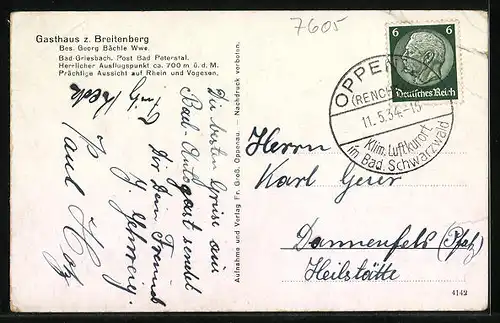 7605
Gasthaus z. Breitenberg
Bes. Georg Bächle Wwe.
Bad Griesbach. Post Bad Peterstal.
Herrlicher Ausflugspunkt ca. 700 m ü. d. M.
Prächtige Aussicht auf Rhein und Vogesen.
Die besten Grüsse aus
Bad Antogast sendet
Dir Dein Freund
Paul Hotz
Aufnahme und Verlag Fr. Groß, Oppenau. — Nachdruck verboten.
6 6
Deutsches Reich
OPPENAU
(RENCHTAL)
11.5.34.-15
Klim. Luftkurort
im Bad. Schwarzwald
Herrn
Karl
Dannenfels (Pfalz)
Heilstätte
4142